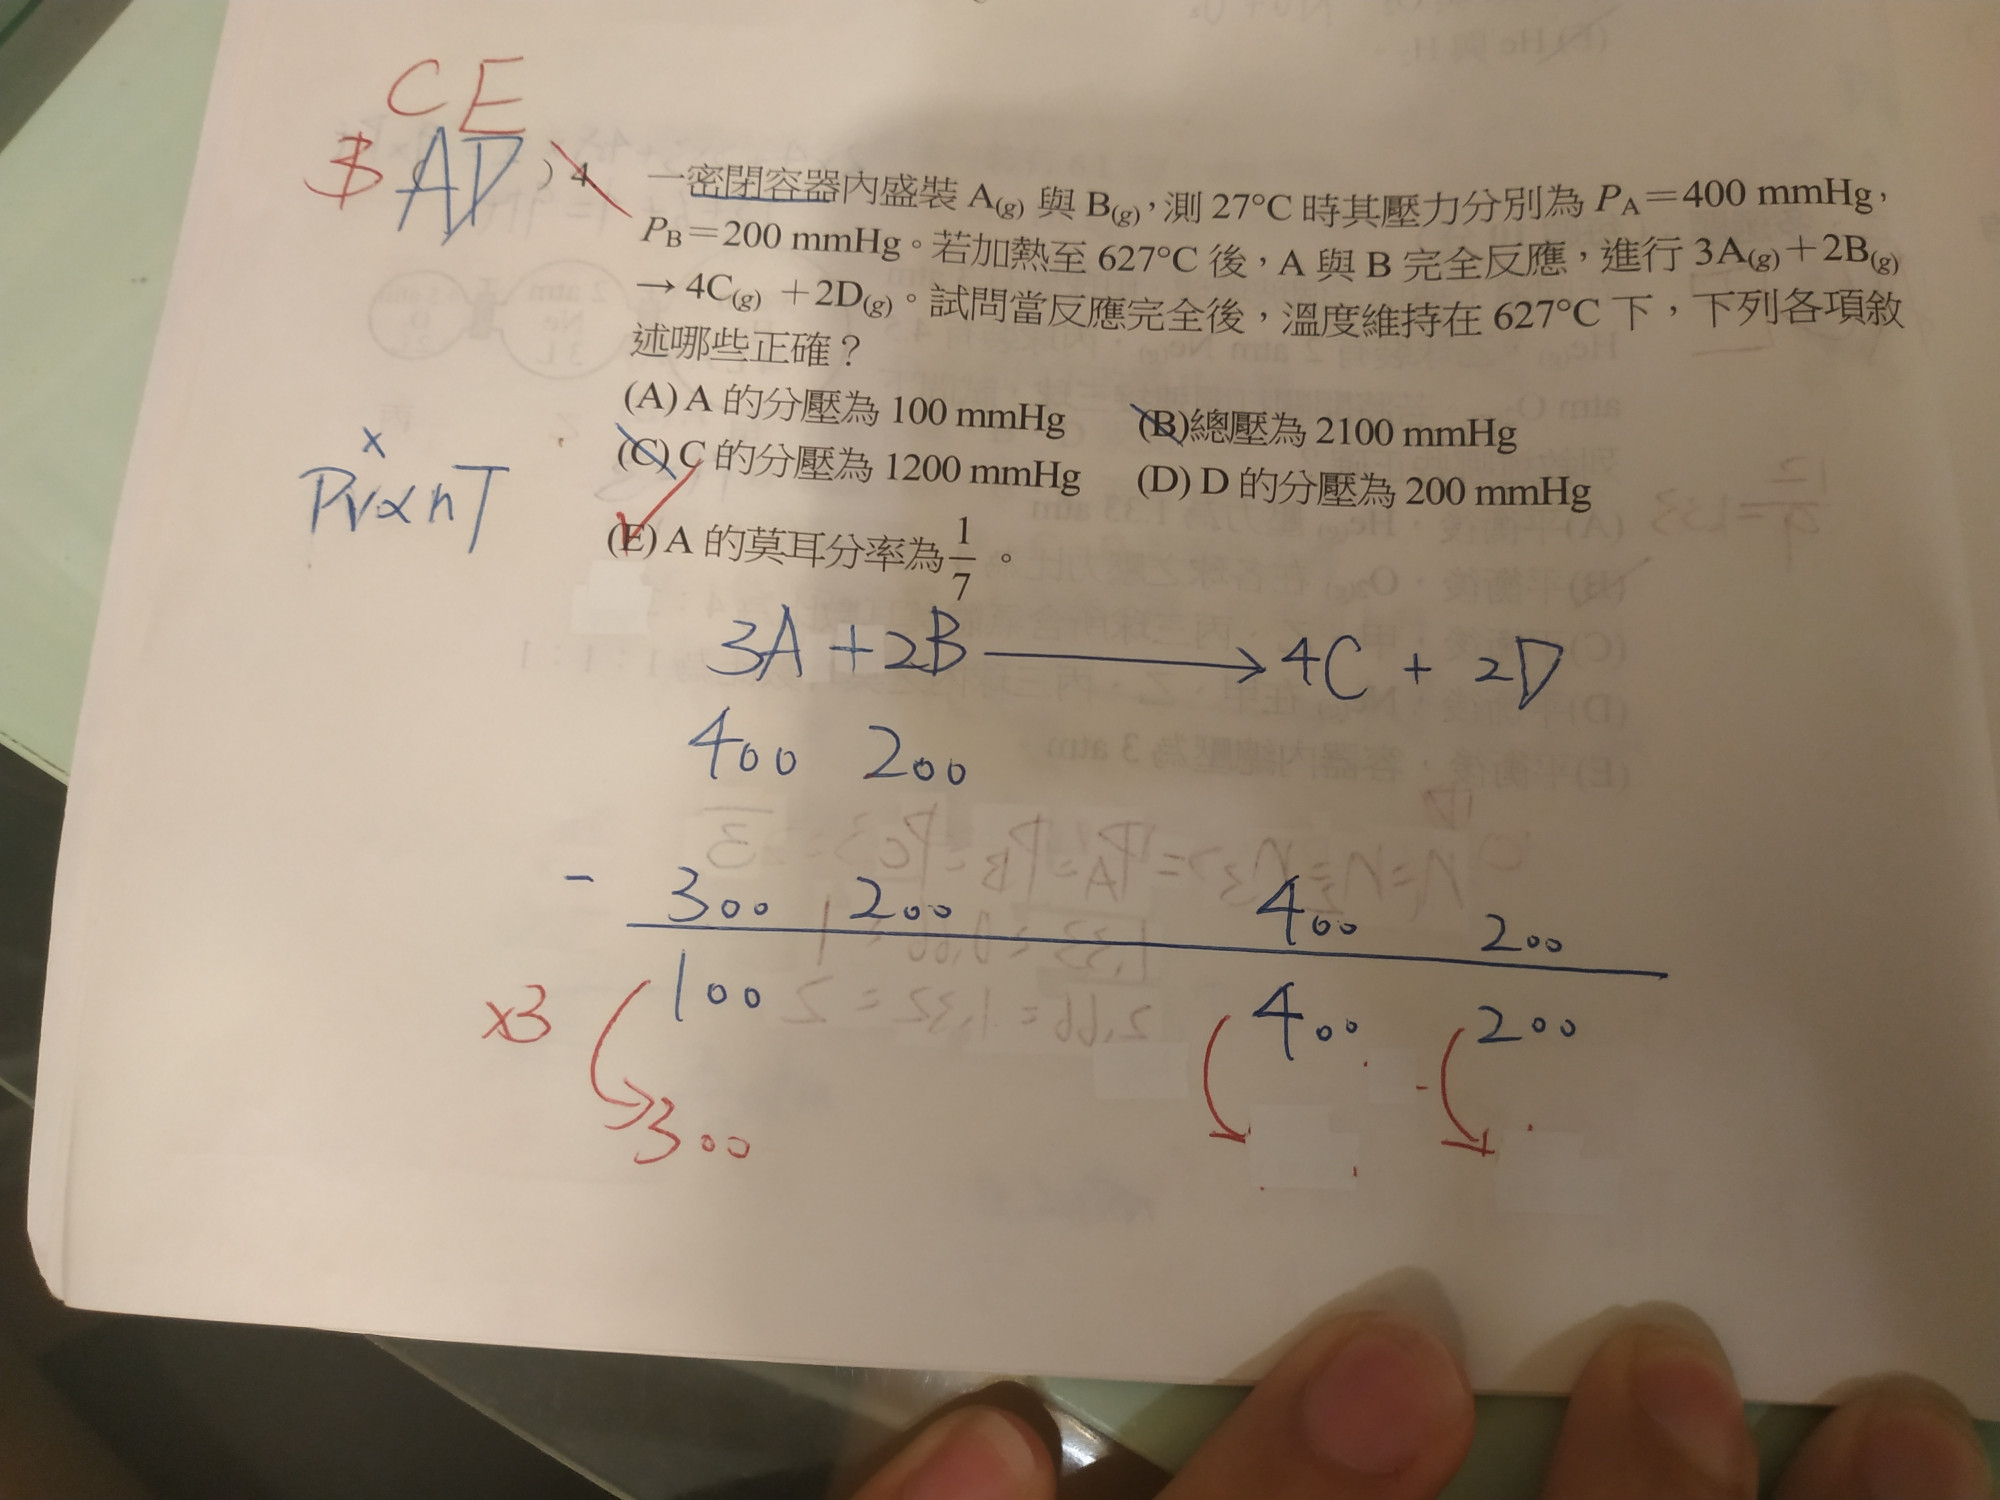 CE
B AD
) 4 一密閉容器內盛裝 A(g) 與 B(g),測 27°C 時其壓力分別為 PA=400 mmHg,
PB=200 mmHg。若加熱至 627°C 後,A 與 B 完全反應,進行 3A(g)+2B(g)
→ 4C(g) +2D(g)。試問當反應完全後,溫度維持在 627°C 下,下列各項敘
述哪些正確?
(A) A 的分壓為 100 mmHg (B)總壓為 2100 mmHg
(C) C 的分壓為 1200 mmHg (D) D 的分壓為 200 mmHg
(E) A 的莫耳分率為 1/7 。
x
PV∝nT
3A+2B→4C+2D
400 200
- 300 200 400 200
100 400 200
x3
300